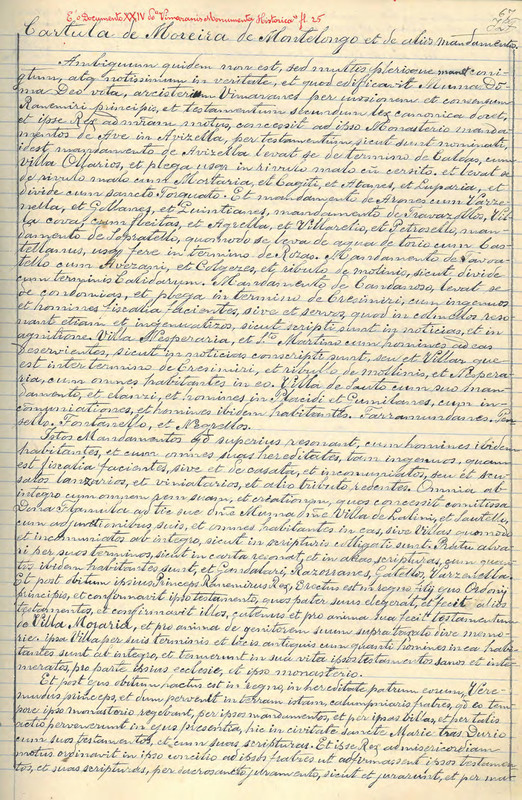 E o Documento XXIV do "Vimaranis Monumenta Historica" fl. 25
67
Cartula de Moreira de Montelongo et de alios mandamentos.
Ambiguum quidem non est, sed multis plerisque manet cogni-
tum, atq notissimum in veritate, et quod edificavit Muma do-
ma Deo vita, arcisterium Vimaranes per jussionem et consensum
Ranemiri principis, et testamentum secundum lex canonica docet,
et ipse Rex admiram motus, concessit ad ipso Monasterio manda-
mentos de Ave in Avizella, per testamentum, sicut sunt nominati,
idest mandamento de Avizella levat se de termino de Caldas, cum
villa Ollarios, et plega usq in rivulo malo cū cersito, et levat se
de rivulo malo cum Mortaria, et Cagiti, et Atanes, et Luparia, et
divide cum sancto Torquato. Et mandamento de Arones cum Varze-
nella, et Gollanes, et Quintianes, mandamento de Travazollos, Vil-
la cova, cum fleitas, et Agrella, et Villarelio, et Petroselo, man-
damento de Sopratello, quomodo se leva de aqua de lorio cum Cas-
tellanus, usq fere in termino de Rozas. Mandamento de Lavora-
tello cum Avezani, et Colgeses, et ribulo de molinis, sicut divide
cum terminis Calidarum. Mandamento de Candanoso, levat se
de condomias, et plega in termino de Creximiri, cum ingenuos
et homines fiscalia facientes, sive et servos, quod in colmellos reso-
nant etiam et ingenuatizos, sicut scripti sunt in noticias, et in
agnitione. Villa Nesperaria, et Sco Martino cum homines ad eas
deservientes, sicut in noticias conscripti sunt, seu et Villar que
est inter termino de Creximiri, et ribullo de mollinis, et Nespera-
ria, cum omnes habitantes in eo. Villa de Sauto cum suo man-
damento, et elanri, et homines in Placidi et Gumilanes, cum in-
comuniationes, et homines ibidem habitantes. Farramundanes. Pen-
sello. Fontanello, et Negrellos.
Istos Mandamentos qd superius resonant, cum homines ibidem
habitantes, et cum omnes suas hereditates, tam ingenuos, quam
est fiscalia faciantes, sive et de casata, et incomuniatos, seu et seu
salos lanzarios, et viniatarios, et alio tributo redentes. Omnia ab
integro cum omnem rem suam, et creationem, quos concessit comitissa
Dona Flamula ad tie sue dnā Muma dnē Villa de Latini, et Sautello,
cum adjunctionibus suis, et omnes habitantes in eas, sive Villas quomodo
et incomuniatos ab integro, sicut in scripturis alligati sunt. Pretu alva-
ri per suos terminos, sicut in carta resonat, et in alias scripturas, cum quan-
tos ibidem habitantes sunt, et Gondalari, Razorsanes, Gatello, Varzatella.
Et post obitum ipsius Princeps Ranemirus Rex, Erectus est in regno filij ejus Ordonij
principis, et confirmavit ipso testamento, quos pater suus elegorat, et fecit alios
testamentos, et confirmavit illos, eutenus et pro anima sua fecit testamentum
de Villa Mojarid, et pro anima de genitorem suum supra taxato dive memo-
rie. ipsa Villa per suis terminis et locis antiquis cum quanti homines in ea habi-
tantes sunt ab integro, et tenuerunt in sua vita ipsos testamentos sanos et inte-
meratos, pro parte ipsius ecclesie, et ipso monasterio.
Et post ejus obitum factus est in regno, in hereditate patrum eorum, Vere-
mudus princeps, et dum pervenit in terram istam, calumpnioris fratres, qi eo tem-
pore ipso monasterio regebant, per ipsos mandamentos, et per ipsas villas, et per talis
actio pervenerunt in ejus presentia, hic in civitate sancte Marie tras Durio
cum suos testamentos, et cum suas scripturas. Et ipse Rex ad misericordiam
motus ordinavit in ipso concilio ad ipsos fratres ut adfirmassent ipsos testamen-
tos, et suas scripturas, per sacrosancto juramento, sicut et jurarunt, et per ma-